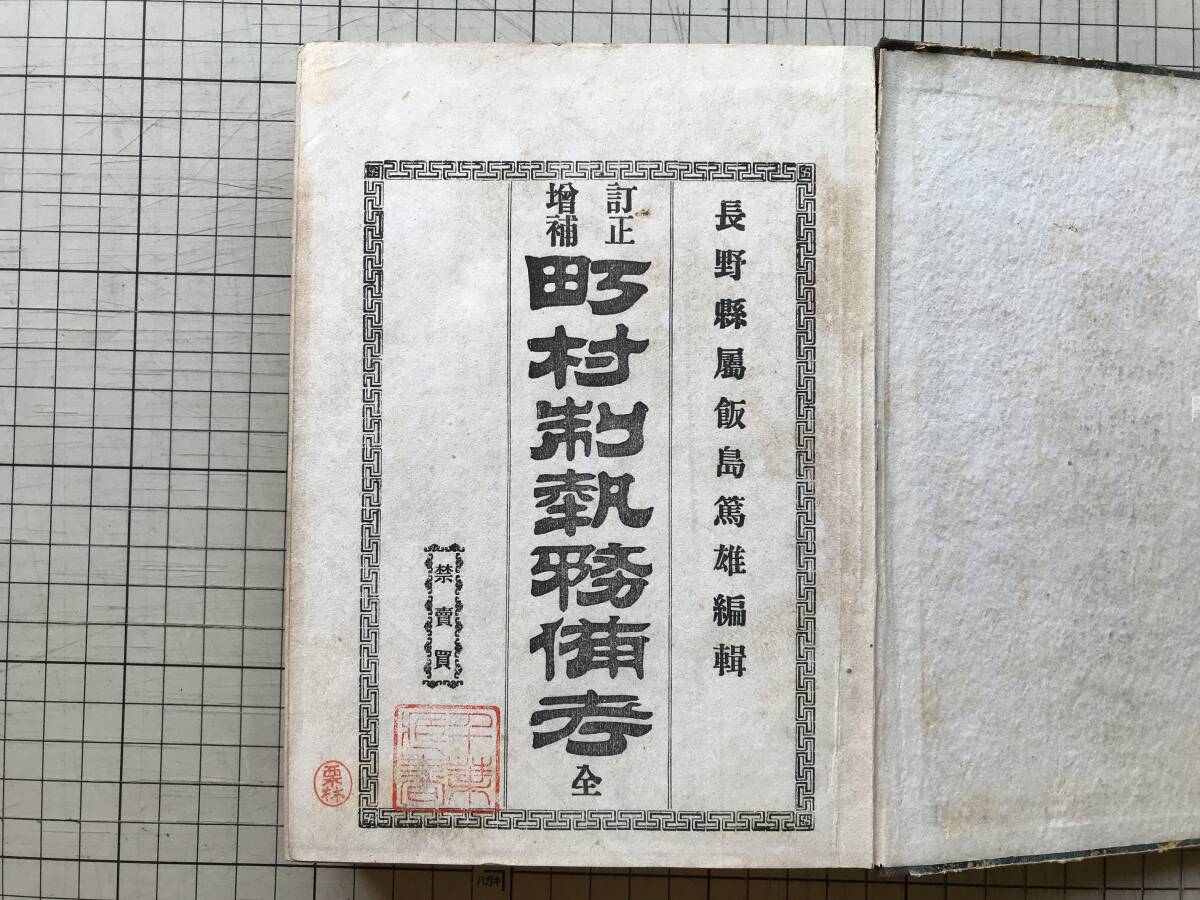 長野縣屬飯島篤雄編輯
訂正
增補
町村制執務備考
全
禁賣買
千葉
藏書
栗林
ハガキ